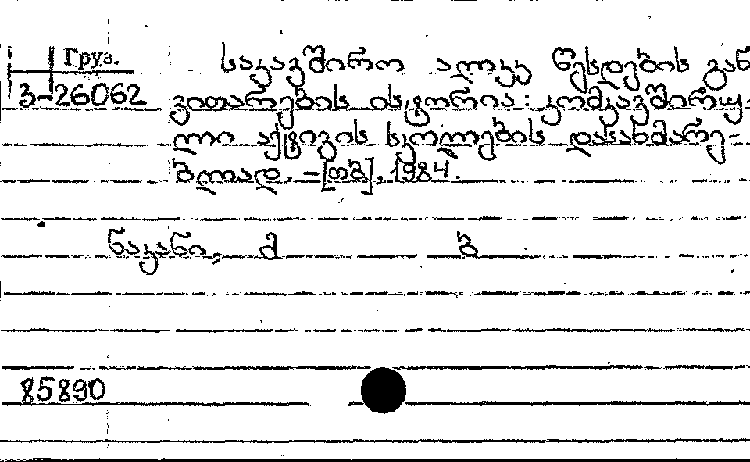 Груз.
საკავშირო ალკკ წესდების გან
3-26062 ვითარების ისტორია: კომკავშირუ-
ლი აქტივის სკოლების დასახმარე-
ბლად. -[თბ], 1984.
ნაკანი, მ ბ
85890